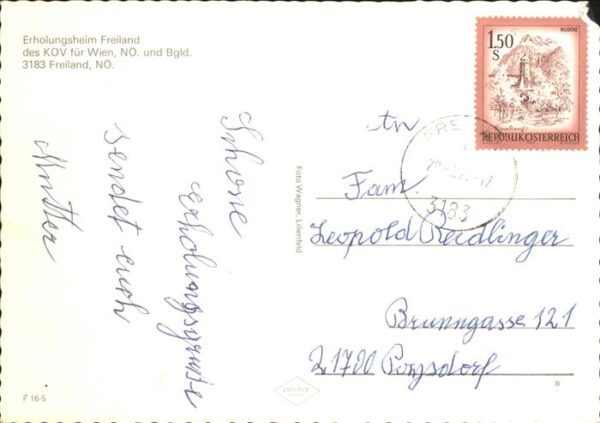 Erholungsheim Freiland
des KOV für Wien, NÖ. und Bgld.
3183 Freiland, NÖ.
Schöne
erholungsgrüße
sendet euch
Mutter
Foto Wagner, Lilienfeld
F 16-5
1.50
S
REPUBLIK ÖSTERREICH
3183
An
Fam.
Leopold Riedlinger
Brunngasse 121
21700 Poysdorf
B